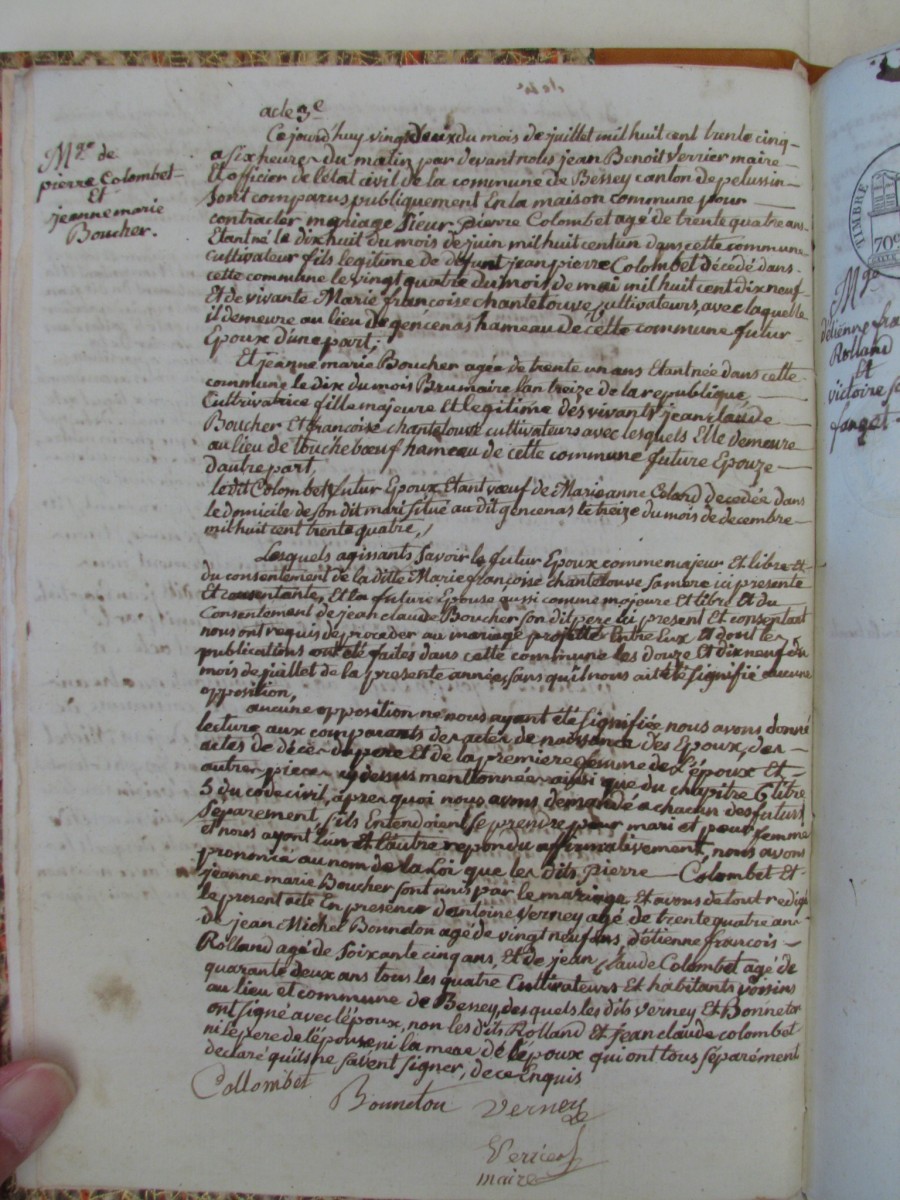 acte 3e
Mge de
pierre Colombet
Et
jeanne marie
Boucher.
Cejourd'huy vingt deux du mois de juillet mil huit cent trente cinq
a six heures du matin par devant nous jean Benoit Verrier maire
Et officier de l'état civil de la commune de Bessey canton de pelussin
Sont comparus publiquement En la maison commune pour
contracter mariage Sieur pierre Colombet agé de trente quatre ans
Etant né le dix huit du mois de juin mil huit cent un dans cette commune
cultivateur fils legitime de defunt jean pierre Colombet décédé dans
cette commune le vingt quatre du mois de mai mil huit cent dix neuf
Et de vivante Marie françoise chantelouve cultivateurs, avec laquelle
il demeure au lieu de gencenas hameau de cette commune futur
Epoux d'une part;
Et jeanne marie Boucher agée de trente un ans Etant née dans cette
commune le dix du mois Brumaire l'an treize de la republique
Cultrivatrice fille majeure Et legitime des vivants jean claude
Boucher Et françoise chantelouve cultivateurs avec lesquels Elle demeure
au lieu de touchebœuf hameau de cette commune future Epouze
d'autre part,
le dit Colombet futur Epoux Etant vœuf de Marie anne Colard decedée dans
le domicile de son dit mari situé au dit gencenas le treize du mois de decembre
mil huit cent trente quatre,
Lesquels agissants Savoir le futur Epoux comme majeur Et libre Et
du consentement de la ditte Marie françoise chantelouve sa mere ici presente
Et consentante, Et la future Epouse aussi comme majeure Et libre Et du
Consentement de jean claude Boucher son dit pere ici present Et consentant
nous ont requis de proceder au mariage projetté Entre Eux Et dont les
publications ont été faites dans cette commune les douze Et dix neuf du
mois de juillet de la presente année, sans qu'il nous ait été signifié aucune
opposition,
aucune opposition ne nous ayant été signifiée nous avons donné
lecture aux comparants des actes de naissance des Epoux, des
actes de décès du pere Et de la premiere femme de l'époux Et
autres pieces ci dessus mentionnées ainsi que du chapitre 6 titre
5 du code civil, après quoi nous avons demandé a chacun des futurs
Séparement s'ils Entendoient se prendre pour mari et pour femme
et nous ayant l'un Et l'autre repondu affirmativement, nous avons
prononcé au nom de la Loi que les dits pierre Colombet Et
jeanne marie Boucher sont unis par le mariage Et avons de tout redigé
le present acte En presence d'antoine Verney agé de trente quatre ans
de jean Michel Bonneton agé de vingt neuf ans, d'étienne françois
Rolland agé de soixante cinq ans, Et de jean claude Colombet agé de
quarante deux ans tous les quatre Cultivateurs Et habitants voisins
au lieu et commune de Bessey, desquels les dits Verney Et Bonneton
ont signé avec l'époux, non les dits Rolland Et jean claude colombet
ni le pere de l'épouse ni la mere de l'époux qui ont tous séparément
declaré qu'ils ne savent signer, de ce Enquis
Collombet
Bonneton Verney
Verrier
maire
TIMBRE
Mge
d'étienne fra
Rolland
Et
victoire